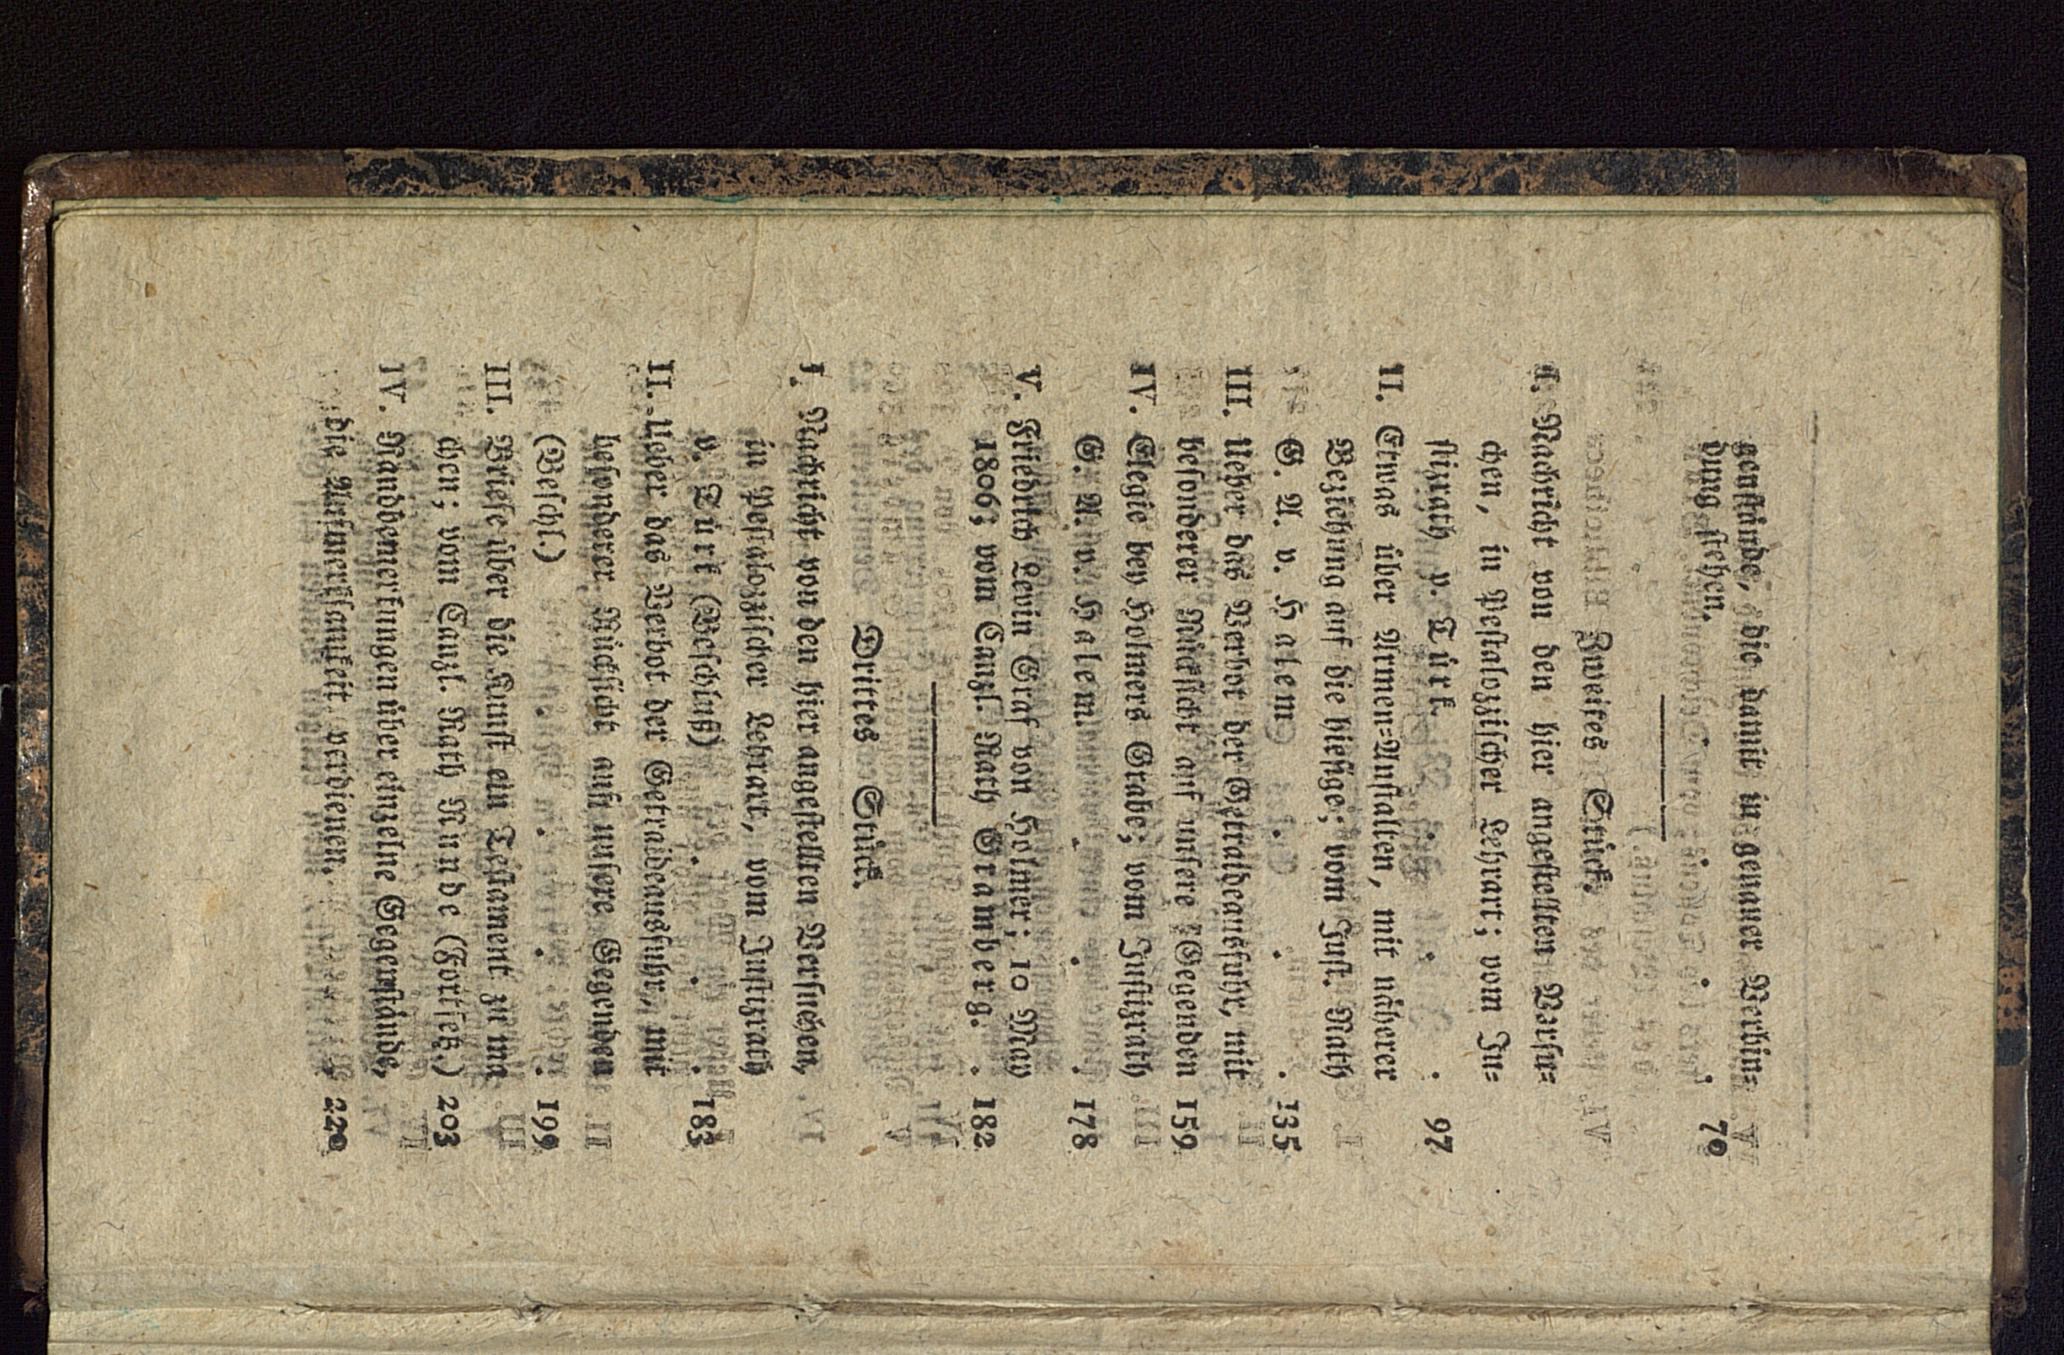 genstände, die damit in genauer Verbin=
dung stehen. . . 70
Zweites Stück.
I. Nachricht von den hier angestellten Versu=
chen, in Pestalozzischer Lehrart; vom Ju=
stizrath v. Türk. . . . 97
II. Etwas über Armen=Anstalten, mit näherer
Beziehung auf die hiesige; vom Just. Rath
G. A. v. Halem . . . 135
III. Ueber das Verbot der Getraideausfuhr, mit
besonderer Rücksicht auf unsere Gegenden 159
IV. Elegie bey Holmers Grabe; vom Justizrath
G. A. v. Halem. . . . 178
V. Friedrich Levin Graf von Holmer; 10 May
1806; vom Canzl. Rath Gramberg. . 182
Drittes Stück.
I. Nachricht von den hier angestellten Versuchen,
in Pestalozzischer Lehrart, vom Justizrath
v. Türk (Beschluß) . . . 183
II. Ueber das Verbot der Getraideausfuhr, mit
besonderer Rücksicht auf unsere Gegenden
(Beschl.) . . . 199
III. Briefe über die Kunst ein Testament zu ma
chen; vom Canzl. Rath Runde (Fortsetz.) 203
IV. Randbemerkungen über einzelne Gegenstände,
die Aufmerksamkeit verdienen. 220